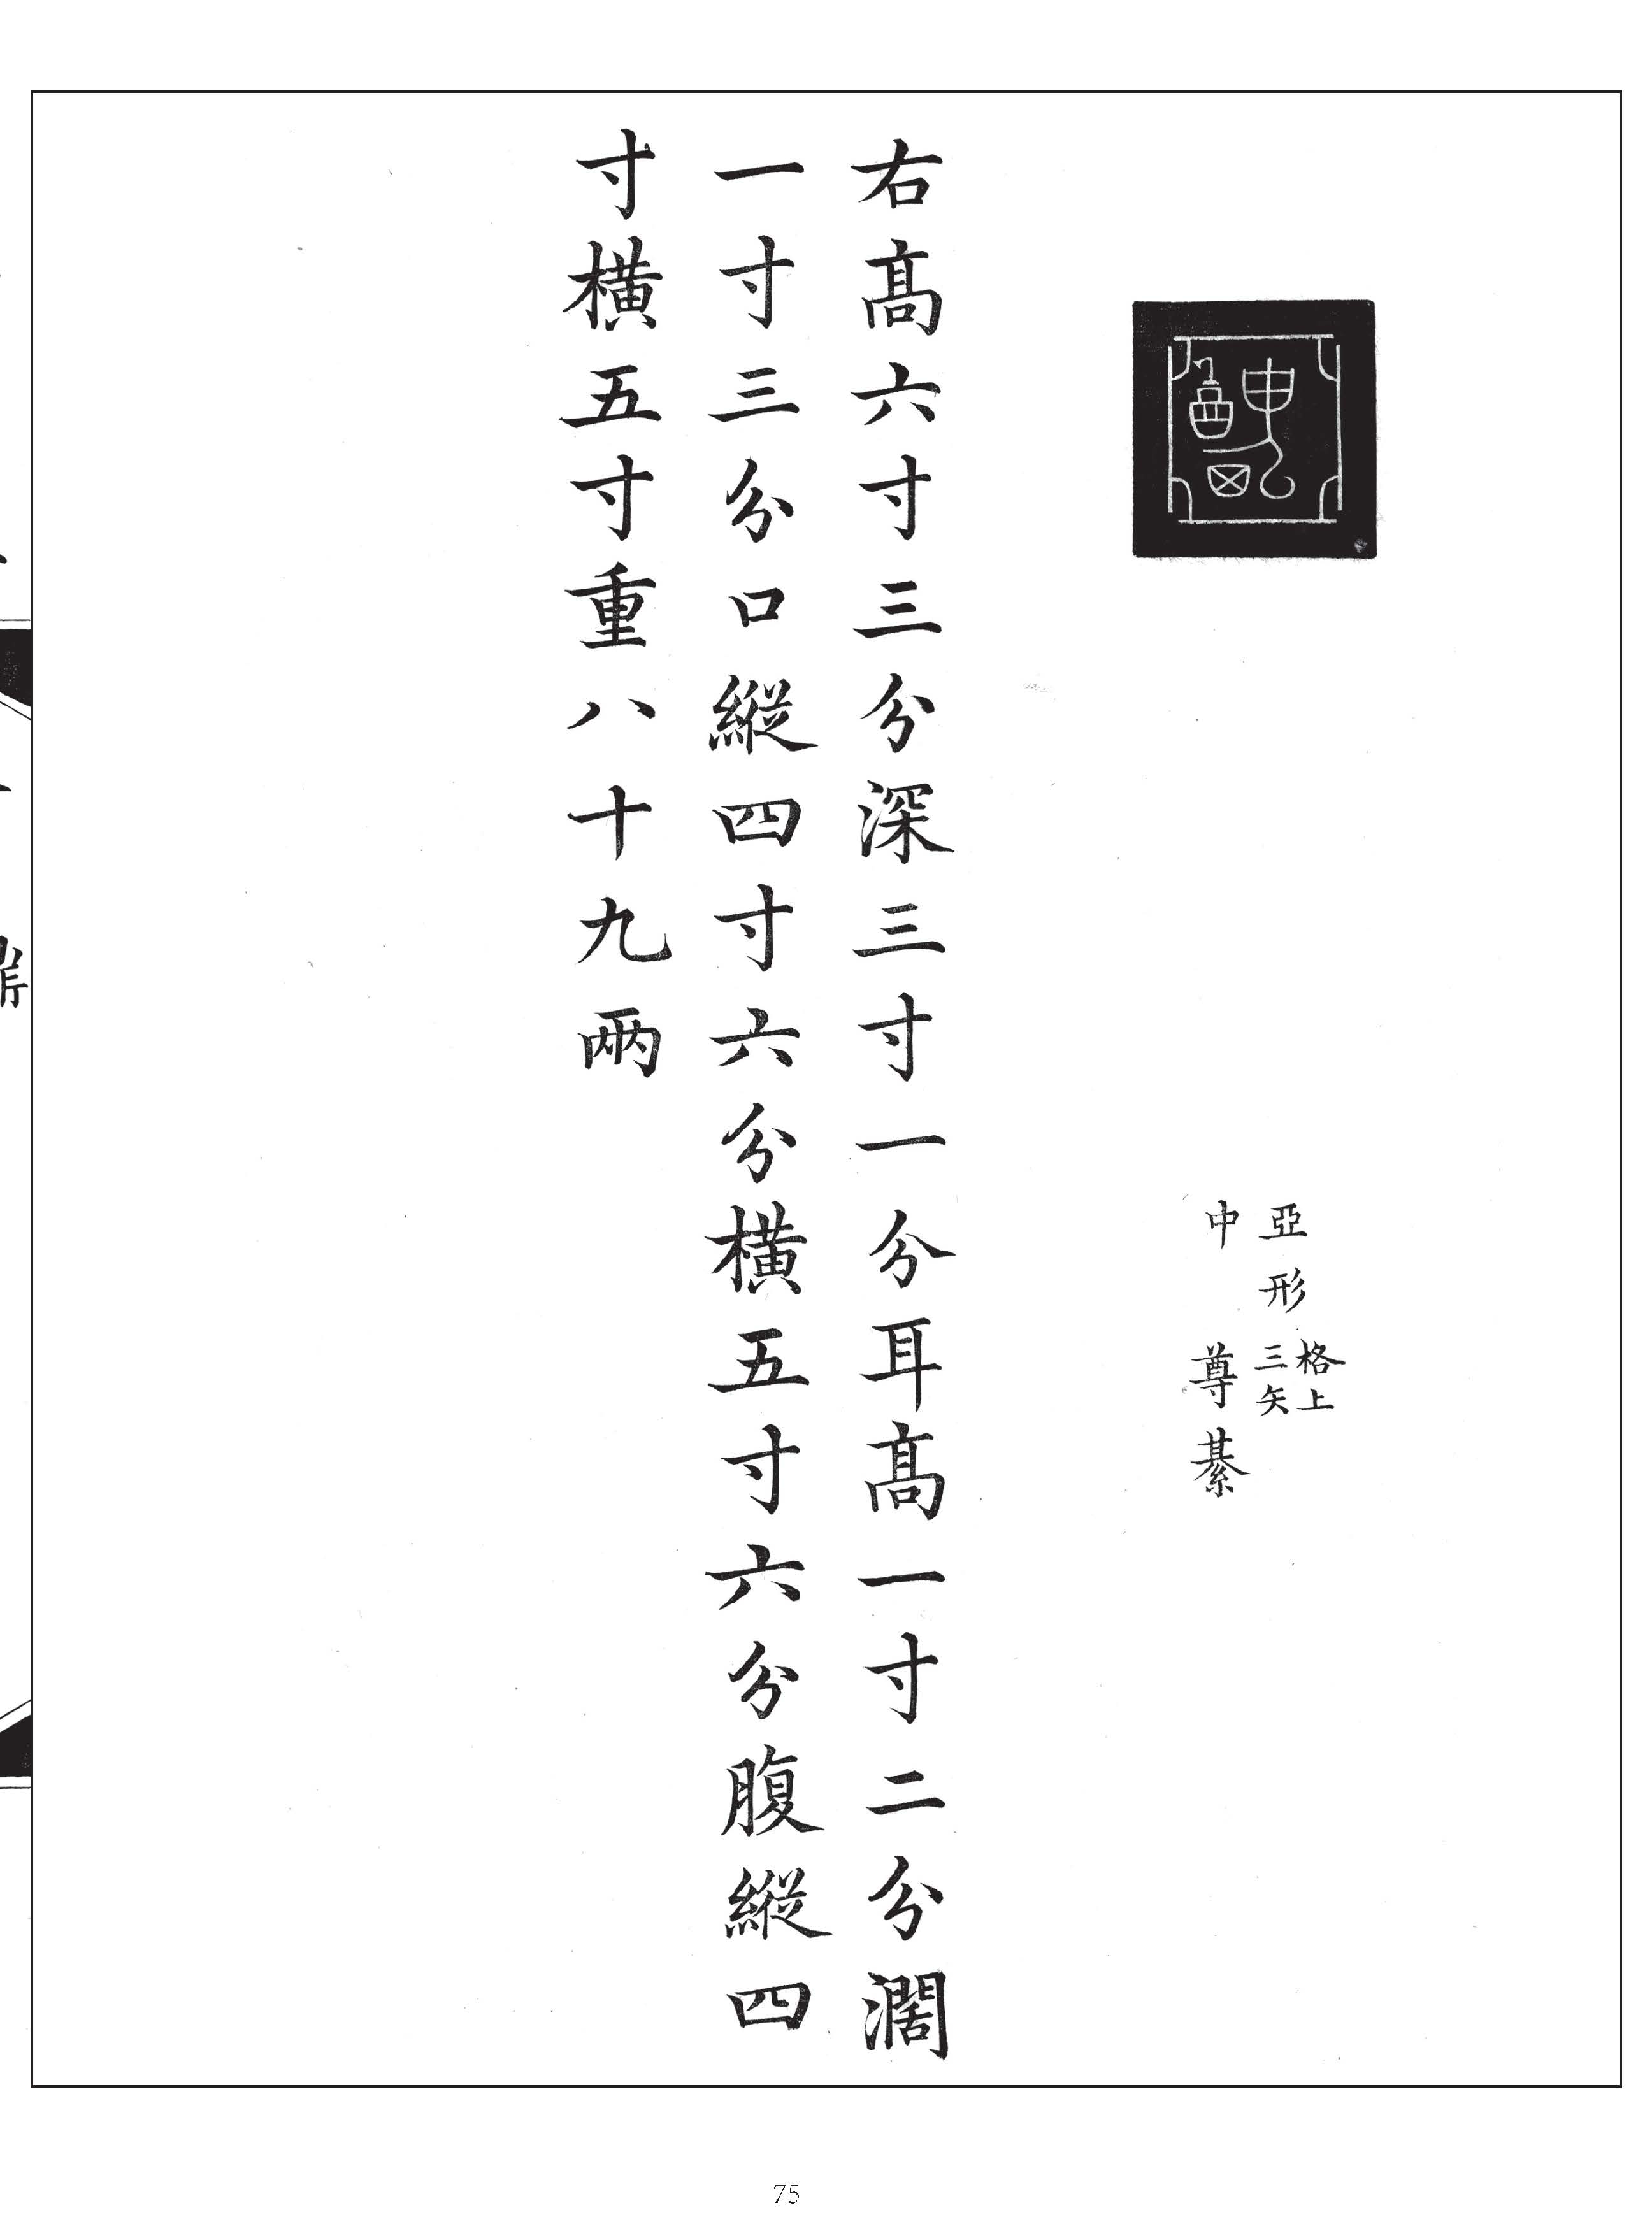 亞形格上三矢
中尊綦
右高六寸三分深三寸一分耳高一寸二分濶
一寸三分口縱四寸六分橫五寸六分腹縱四
寸橫五寸重八十九兩
75